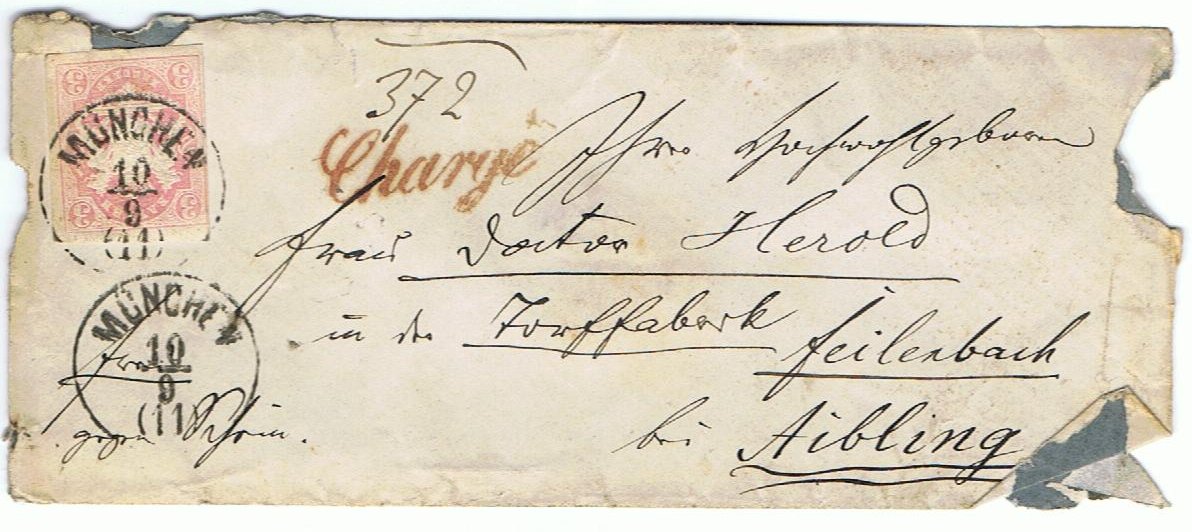 MÜNCHEN
10
9
(11)
372
Chargé
Ihro Hochwohlgeboren
Frau Doctor Herold
in der Torffabrik
Feilenbach
bei Aibling
MÜNCHEN
10
9
(11)
fro
gegen Schein.